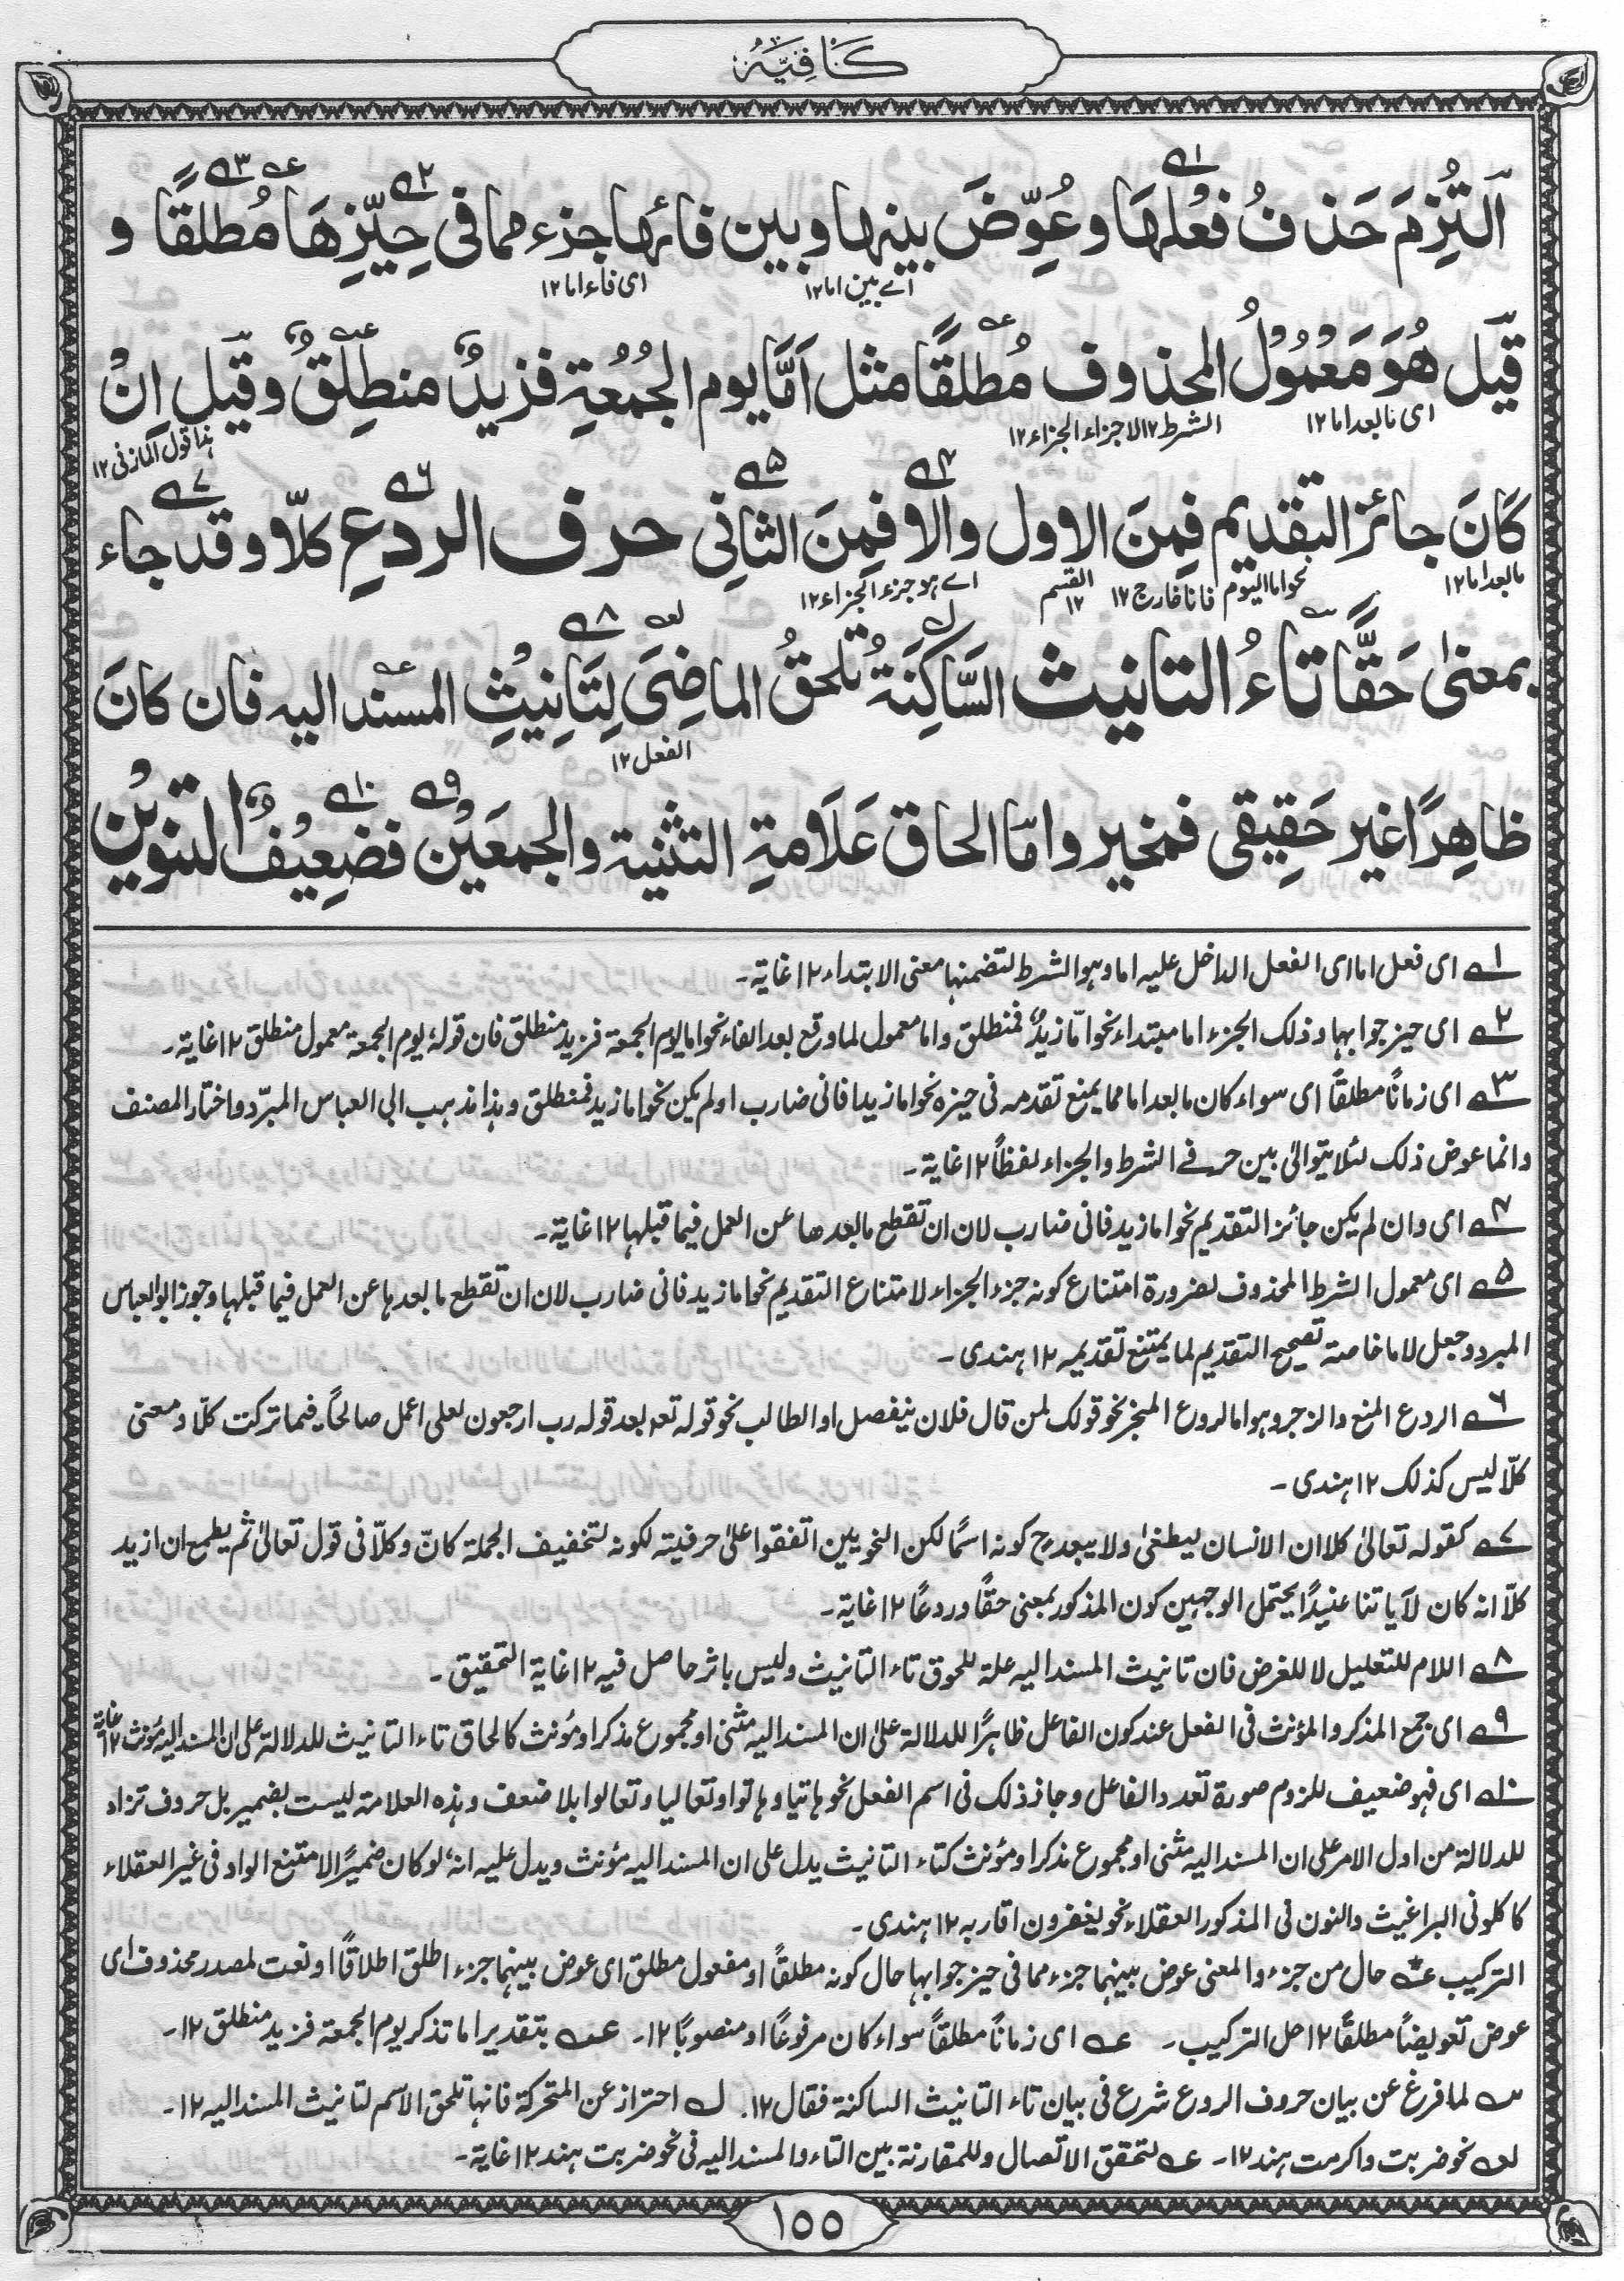 كَافِيَه
اُلتُزِمَ حَذفُ فعْلُهَا وعُوِّضَ بينها وبين فائها جزء مما فى حِيّزِهَا مُطلقًا و
اے بين اما١٢ اى فاء اما١٢
قِيل هُوَ مَعْمُوْلُ المحذوف مُطلقًا مثل اَمَّا يوم الجُمُعةِ فزيدٌ منطلِقٌ وقِيل اِنْ
اى ما بعد اما١٢ الشرط١٢ لا جزاء الجزاء١٢ هذا قول المازنى١٢
كَانَ جائز التقديم فمِنَ الاول والا فمِنَ الثانِى حرف الردعِ كلّا وقد جاء
ما بعد اما١٢ نحو اما اليوم فانا خارج١٢ القسم١٢ اے هو جزء الجزاء١٢
بمعنىٰ حَقًّا تاءُ التانيث السَّاكِنَةُ تلحقُ الماضِىَ لِتَانِيْثِ المسند اليه فان كانَ
الفعل١٢
ظاهِرًا غير حَقِيقى فمخير وامّا الحاق عَلَامةِ التثنية والجمعَيْن فضعِيفٌ التنوِيْن
١ اى فعل اما اى الفعل الداخل عليه اما وهو الشرط لتضمنها معنى الابتداء١٢ غاية۔
٢ اى حيز جوابها وذلك الجزء اما مبتداء نحو امّا زيدٌ فمنطلق واما معمول لما وقع بعد الفاء نحو اما يوم الجمعة فزيد منطلق فان قولهٗ يوم الجمعة معمول منطلق١٢ غاية۔
٣ اى زمانًا مطلقًا اى سواء كان ما بعد اما مما يمنع تقدمه فى حيزه نحو اما زيدا فانى ضارب او لم يكن نحو اما زيد فمنطلق وهذا مذهب ابى العباس المبرّد واختار المصنف
وانما عوض ذلك لئلا يتوالىٰ بين حرفے الشرط والجزاء لفظًا١٢ غاية۔
٤ اى وان لم يكن جائز التقديم نحو اما زيد فانى ضارب لان ان تقطع ما بعدها عن العمل فيما قبلها١٢ غاية۔
٥ اى معمول الشرط المحذوف لضرورة امتناع كونه جزء الجزاء لامتناع التقديم نحو اما زيد فانى ضارب لان ان تقطع ما بعدها عن العمل فيما قبلها وجوز ابو العباس
المبرد وجعل لاما خاصة تصحيح التقديم لما يمتنع تقديمه١٢ هندى۔
٦ الردع المنع والزجر وهو اما لروع المخبر نحو قولك لمن قال فلان يبغضك او الطالب نحو قوله تع بعد قوله رب ارجعون لعلى اعمل صالحًا فيما تركت كلّا ومعنى
كلّا ليس كذلك١٢ هندى۔
٧ كقوله تعالىٰ كلا ان الانسان ليطغىٰ ولا يبعد ح كونه اسمًا لكن النحويين اتفقوا علىٰ حرفيته لكونه لتخفيف الجملة كانّ وكلّا فى قول تعالىٰ ثم يطمع ان ازيد
كلّا انه كان لآياتنا عنيدًا يحتمل الوجهين كون المذكور بمعنى حقًا وردعًا١٢ غاية۔
٨ اللام للتعليل لا للغرض فان تانيث المسند اليه علة للحوق تاء التانيث وليس باثر حاصل فيه١٢ غاية التحقيق۔
٩ اى جمع المذكر والمؤنث فى الفعل عند كون الفاعل ظاهرًا للدلالة علىٰ ان المسند اليه مثنى او مجموع مذكر او مؤنث كالحاق تاء التانيث للدلالة على ان المسند اليه مؤنث١٢ غاية
١٠ اى فهو ضعيف للزوم صورة تعدد الفاعل وجاز ذلك فى اسم الفعل نحو هاتيا وهاتوا وتعاليا وتعالوا بلا ضعف وهذه العلامة ليست بضمير بل حروف تزاد
للدلالة من اول الامر على ان المسند اليه مثنى او مجموع مذكر او مؤنث كتاء التانيث يدل على ان المسند اليه مؤنث ويدل عليه انهٗ لو كان ضميرًا لامتنع الواو فى غير العقلاء
كاكلونى البراغيث والنون فى المذكور العقلاء نحو يغفرون اقاربه١٢ هندى۔
التركيب عه حال من جزء والمعنى عوض بينهما جزء مما فى حيز جوابها حال كونه مطلقًا او مفعول مطلق اى عوض بينهما جزء اطلق اطلاقًا او نعت لمصدر محذوف اى
عوض تعويضًا مطلقًا١٢ حل التركيب۔ عه اى زمانًا مطلقًا سواء كان مرفوعًا او منصوبًا١٢۔ عه بتقدير اما تذكر يوم الجمعة فزيد منطلق١٢۔
سه لما فرغ عن بيان حروف الروع شرع فى بيان تاء التانيث الساكنة فقال١٢۔ له احتراز عن المتحركة فانها تلحق الاسم لتانيث المسند اليه١٢۔
لعه نحو ضربت واكرمت هند١٢۔ عه لتحقق الاتصال وللمقارنة بين التاء والمسند اليه فى نحو ضربت هند١٢ غاية۔
١٥٥